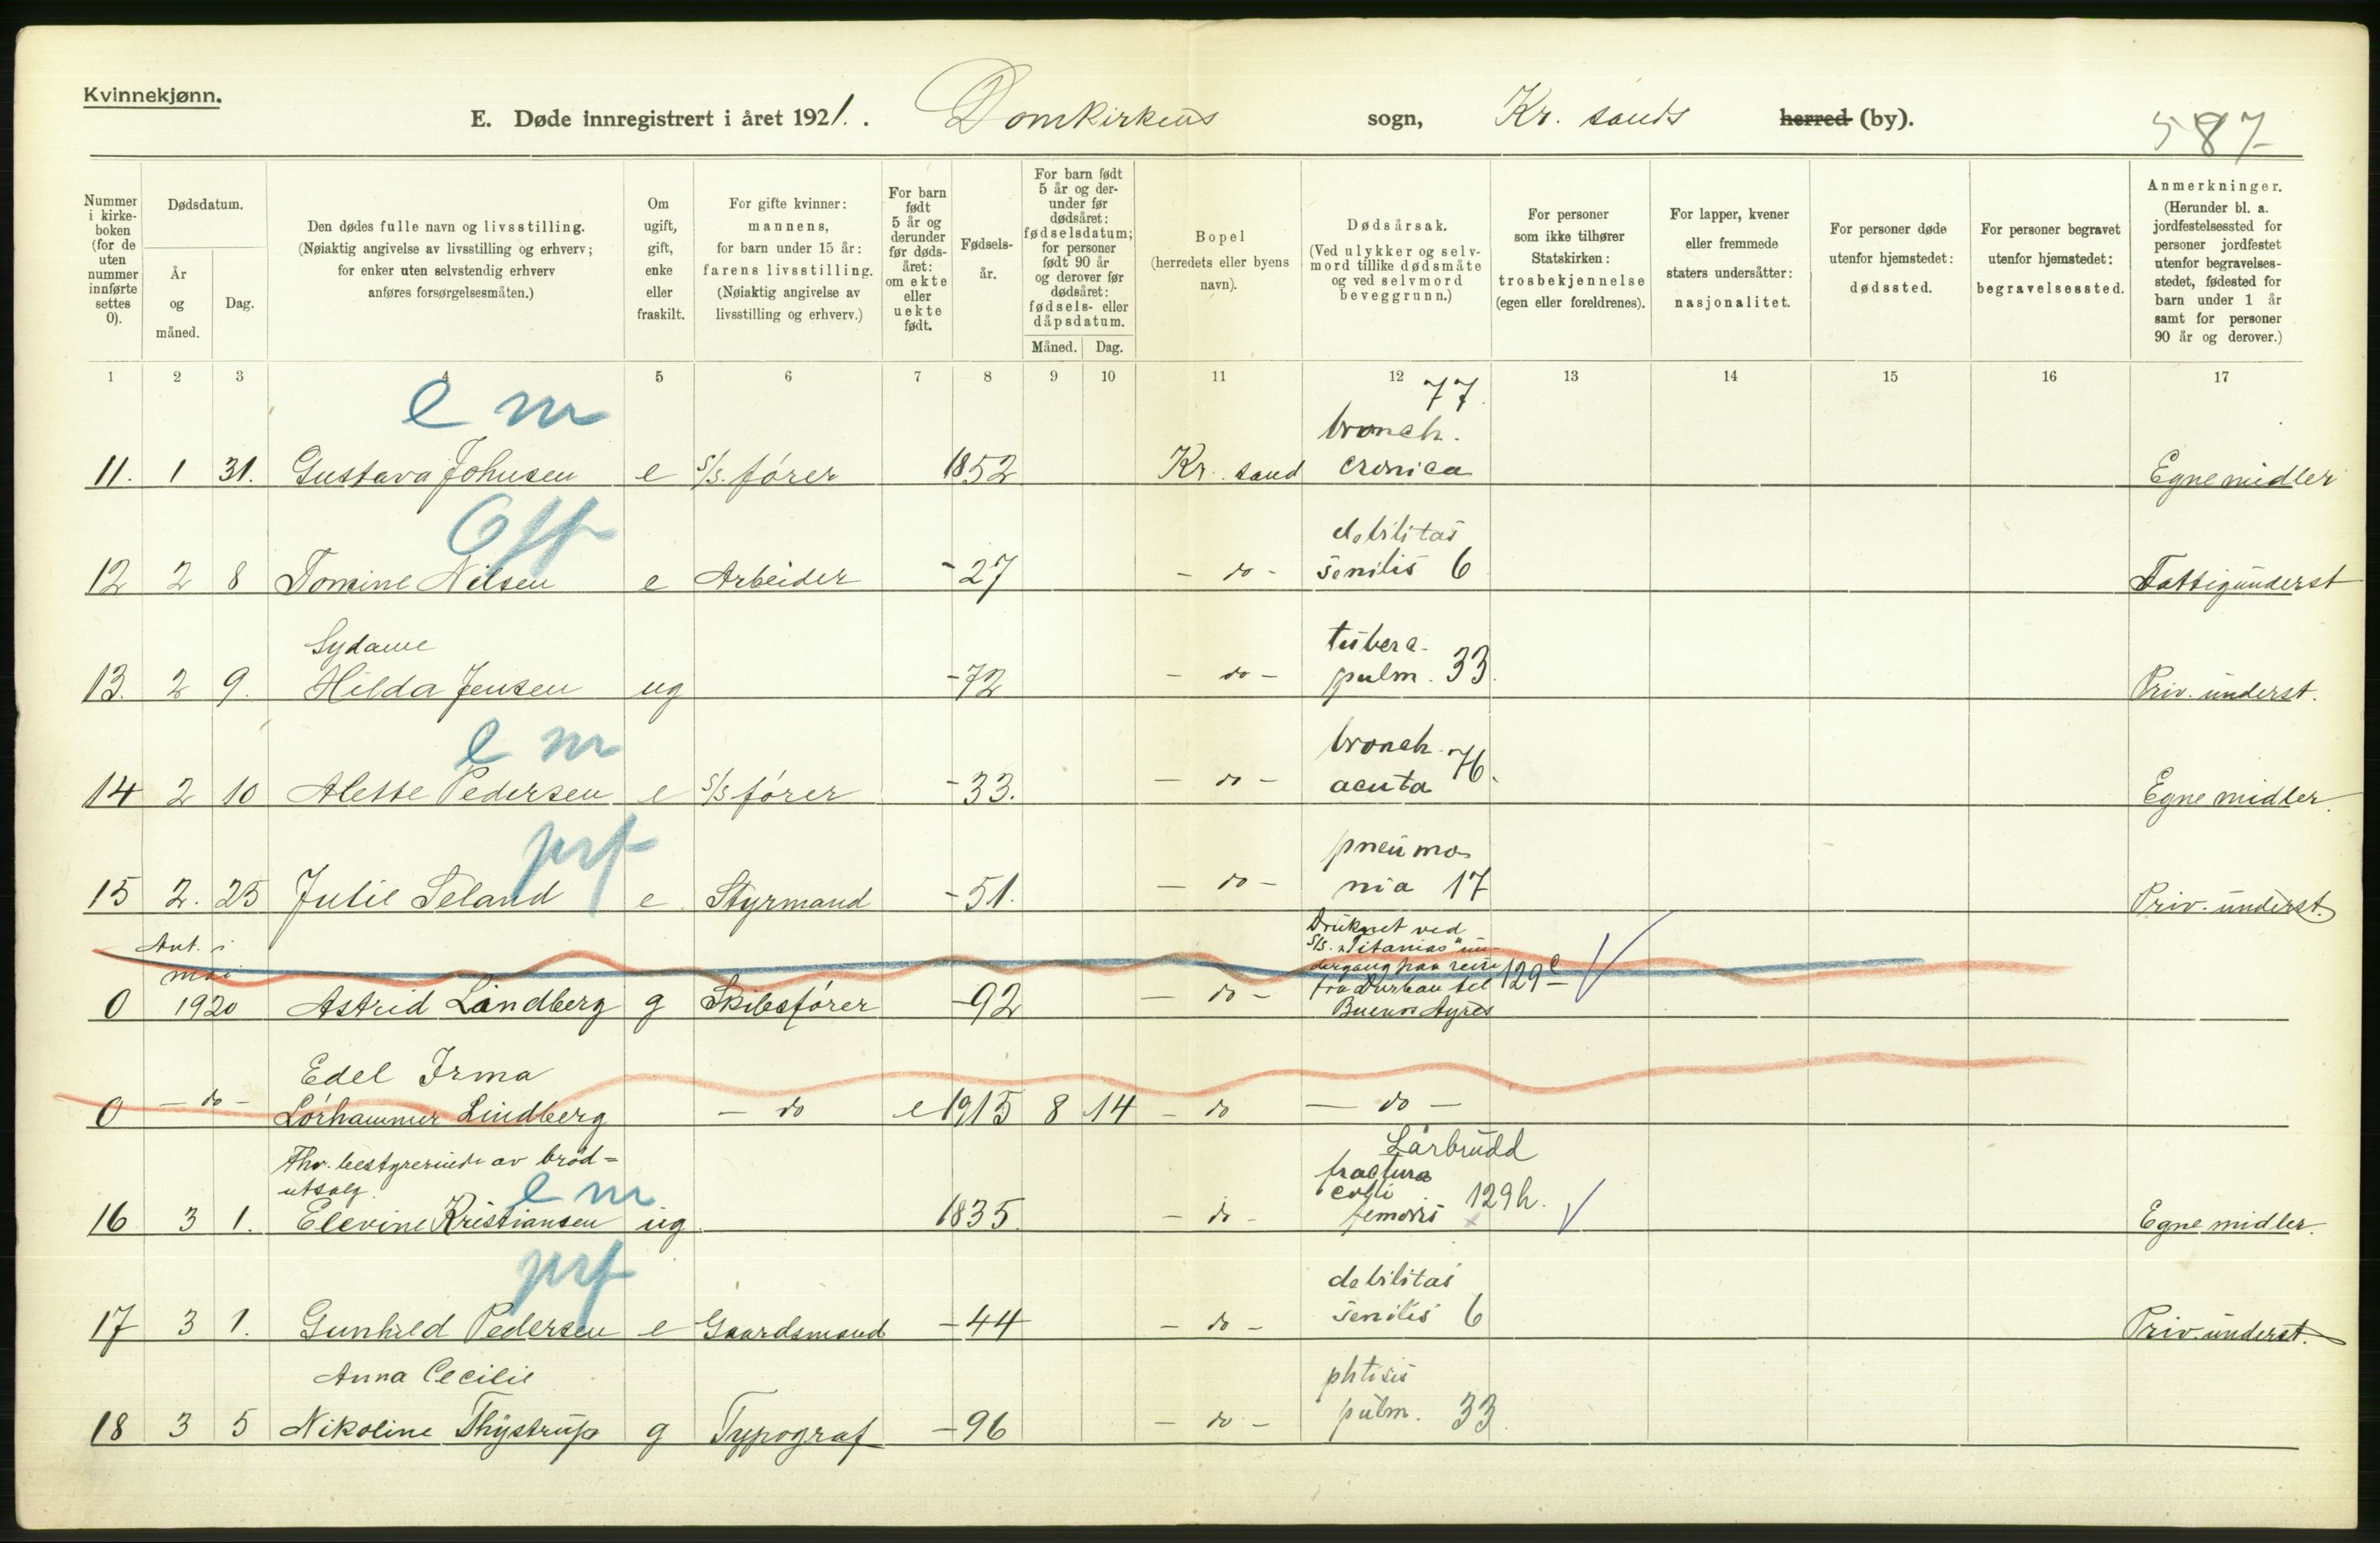 Kvinnekjønn.
E. Døde innregistrert i året 1921. . Domkirkens sogn, Kr. sands herred (by).
587
Nummer i kirke-boken (for de uten nummer innførte settes 0).
Dødsdatum.
År og måned.
Dag.
Den dødes fulle navn og livsstilling.
(Nøiaktig angivelse av livsstilling og erhverv;
for enker uten selvstendig erhverv
anføres forsørgelsesmåten.)
Om ugift, gift, enke eller fraskilt.
For gifte kvinner:
mannens,
for barn under 15 år:
farens livsstilling.
(Nøiaktig angivelse av
livsstilling og erhverv.)
For barn født 5 år og derunder før døds-året: om ekte eller uekte født.
Fødsels-år.
For barn født 5 år og der-under før dødsåret: fødselsdatum; for personer født 90 år og derover før dødsåret: fødsels- eller dåpsdatum.
Måned. Dag.
Bopel
(herredets eller byens
navn).
Dødsårsak.
(Ved ulykker og selv-
mord tillike dødsmåte
og ved selvmord
beveggrunn.)
For personer
som ikke tilhører
Statskirken:
trosbekjennelse
(egen eller foreldrenes).
For lapper, kvener
eller fremmede
staters undersåtter:
nasjonalitet.
For personer døde
utenfor hjemstedet:
dødssted.
For personer begravet
utenfor hjemstedet:
begravelsessted.
Anmerkninger.
(Herunder bl. a.
jordfestelsessted for
personer jordfestet
utenfor begravelses-
stedet, fødested for
barn under 1 år
samt for personer
90 år og derover.)
1 2 3 4 5 6 7 8 9 10 11 12 13 14 15 16 17
e m
77.
bronch.
11. 1 31. Gustava Johnsen e S/S. fører 1852 Kr. sand cronica Egne midler
Off
debilitas
12 2 8 Tomine Nilsen e Arbeider -27 - do - senilis 6 Fattigunderst
Sydame
tuberc.
13. 2 9. Hilda Jensen ug -72 - do - pulm. 33. Priv. underst.
e m
bronch. 76.
14 2 10 Alette Pedersen e S/S fører -33. - do - acuta Egne midler.
prf
pneumo
15 2. 25 Julie Seland e Styrmand -51. - do - nia 17 Priv. underst.
Ant. i
mai
Druknet ved
S/S. "Titanias" un-
dergang paa reise
fra Durban til 129 e
0 1920 Astrid Lindberg g Skibsfører -92 - do - Buenos Ayres
Edel Irma
0 - do - Lórhammer Lindberg - do e 1915 8 14 - do - do -
Fhv. bestyrerinde av brød=
utsalg.
e m
Lårbrudd
fractura
colli 129 h.
16 3 1. Elevine Kristiansen ug 1835. - do - femoris Egne midler.
prf
debilitas
17 3 1. Gunhild Pedersen e Gaardsmand -44 - do - senilis 6 Priv. underst.
Anna Cecilie
phtisis
18 3 5 Nikoline Thystrup g Typograf -96 - do - pulm. 33.